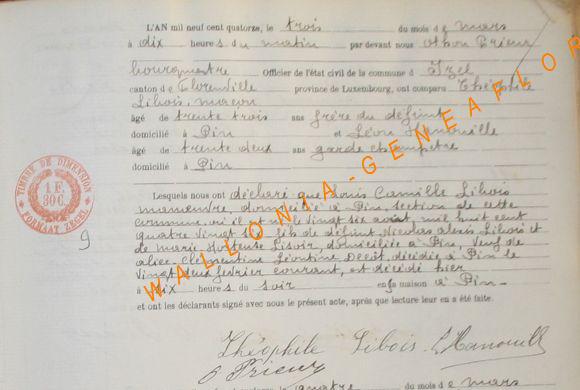 L'AN mil neuf cent quatorze, le trois du mois de mars
à dix heures du matin par devant nous Othon Prieur
bourgmestre Officier de l'état civil de la commune d Izel
canton de Florenville province de Luxembourg, ont comparu Théophile
Libois, maçon
âgé de trente trois ans frère du défunt
domicilié à Pin et Léon Hanouille
âgé de trente deux ans garde champêtre
domicilié à Pin
Lesquels nous ont déclaré que Louis Camille Libois
manœuvre domicilié à Pin section de cette
commune où il est né le vingt six août mil huit cent
quatre vingt fils de défunt Nicolas Alexis Libois et
de Marie Hortense Lisoir, domiciliée à Pin, veuf de
Alice Clémentine Léontine décédée à Pin le
vingt deux février courant, est décédé hier
à dix heures du soir en sa maison à Pin
et ont les déclarants signé avec nous le présent acte, après que lecture leur en a été faite.
Théophile Libois L. Hanouille
O Prieur
quatre du mois de mars
TIMBRE DE DIMENSION
1 F.
30 C.
FORMAAT ZEGEL
9
WALLONIA-GENEAFLOR